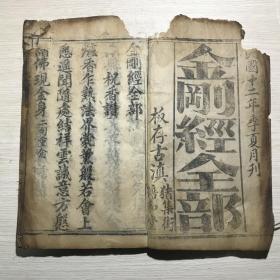 民國十二年季夏月刊
金剛經全部
板存古滇
金剛經全部
祝香讚
爐香乍熱法界蒙薰般若會上
悉遥聞隨處結祥雲誠意方慇
諸佛現全身